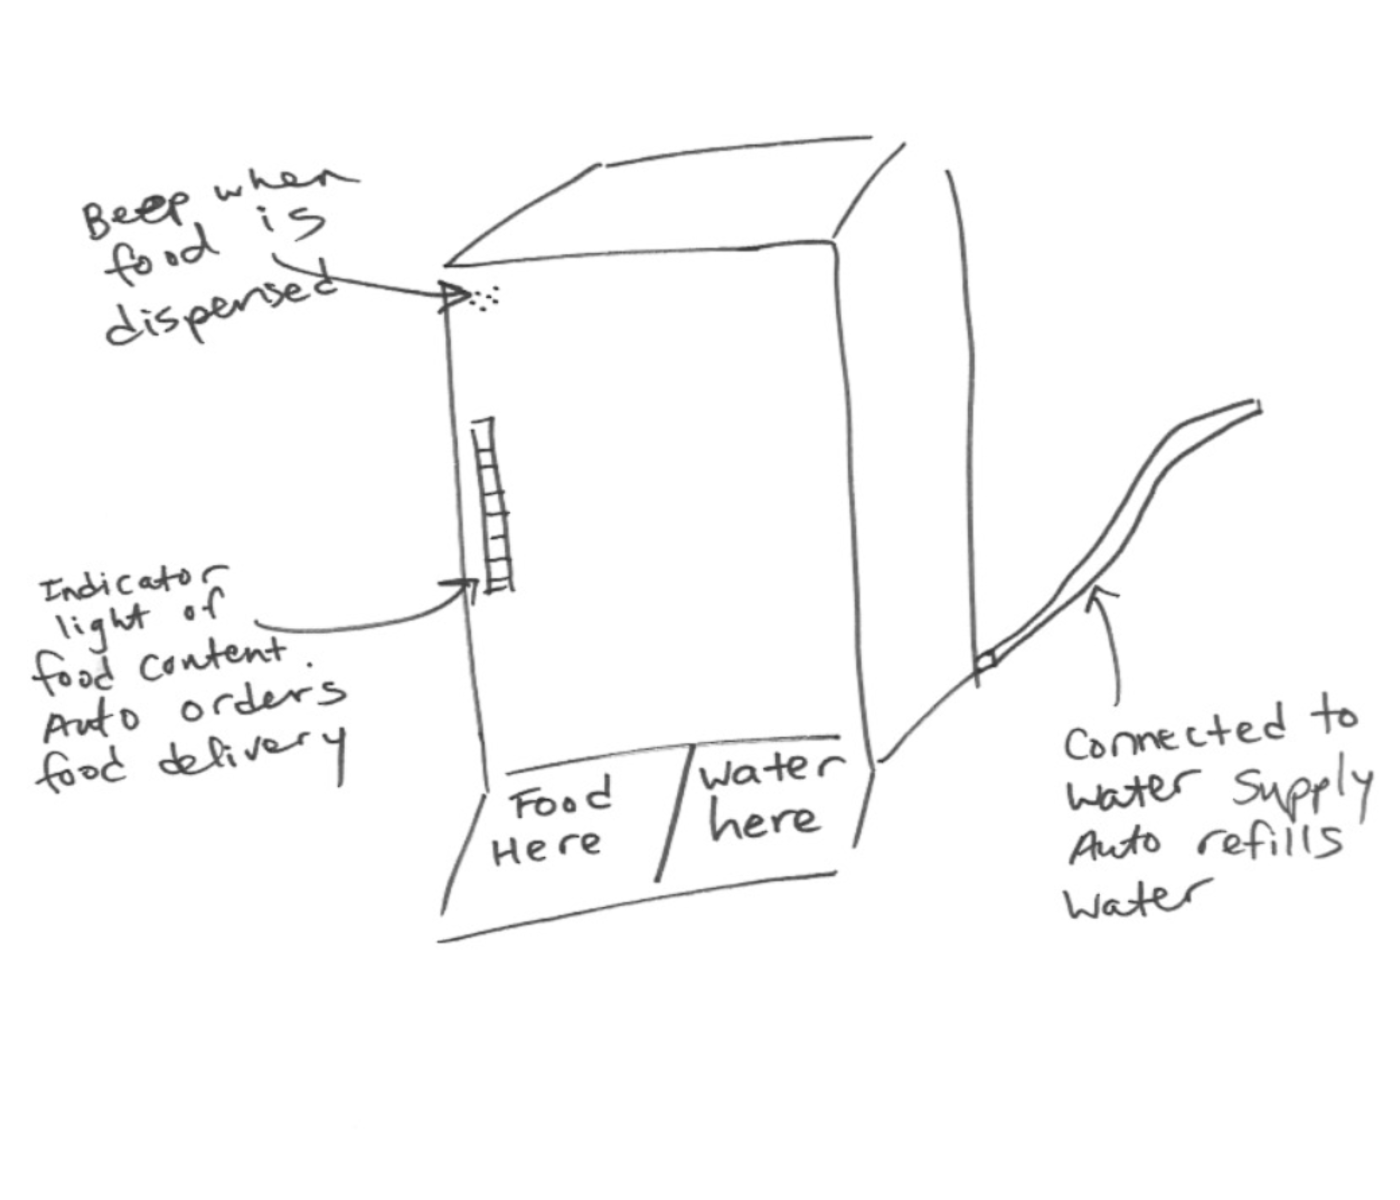 Beep when
food is
dispensed
Indicator
light of
food content.
Auto orders
food delivery
Food
Here
water
here
Connected to
Water Supply
Auto refills
Water